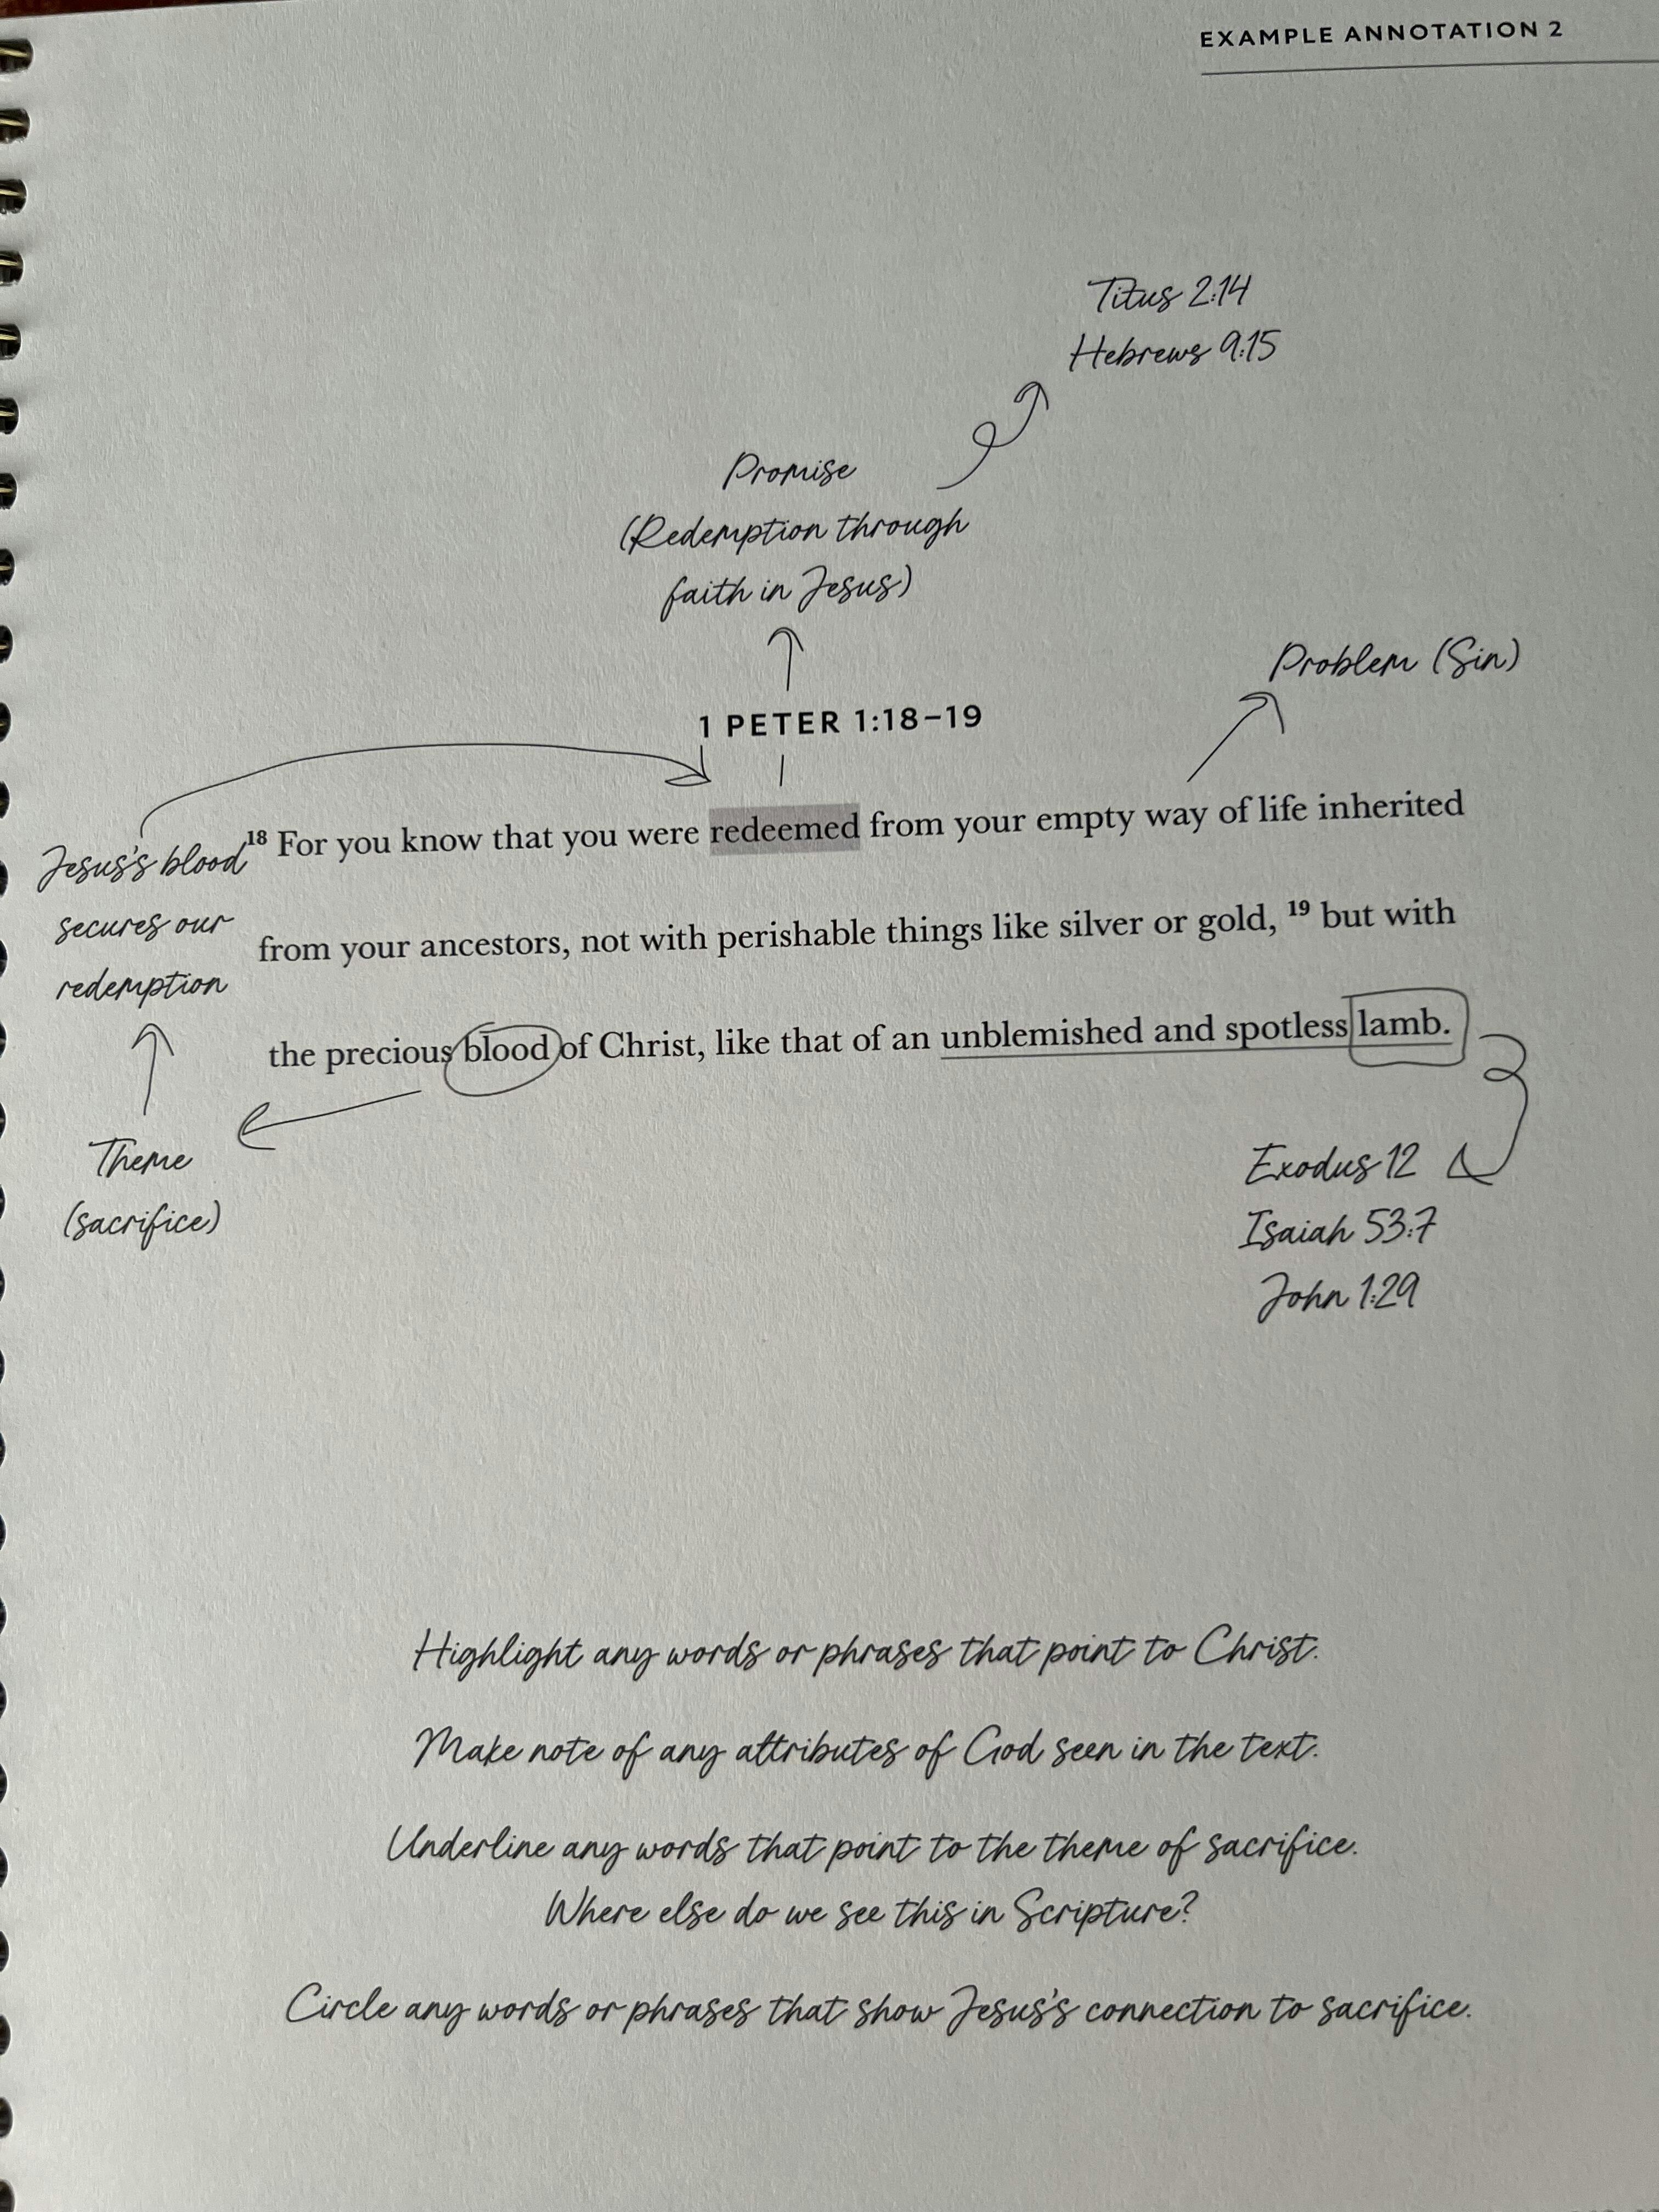 EXAMPLE ANNOTATION 2
Titus 2:14
Hebrews 9:15
Promise
(Redemption through
faith in Jesus)
Problem (Sin)
1 PETER 1:18–19
Jesus's blood
secures our
redemption
18 For you know that you were redeemed from your empty way of life inherited
from your ancestors, not with perishable things like silver or gold, 19 but with
the precious blood of Christ, like that of an unblemished and spotless lamb.
Theme
(sacrifice)
Exodus 12
Isaiah 53:7
John 1:29
Highlight any words or phrases that point to Christ.
Make note of any attributes of God seen in the text.
Underline any words that point to the theme of sacrifice.
Where else do we see this in Scripture?
Circle any words or phrases that show Jesus's connection to sacrifice.